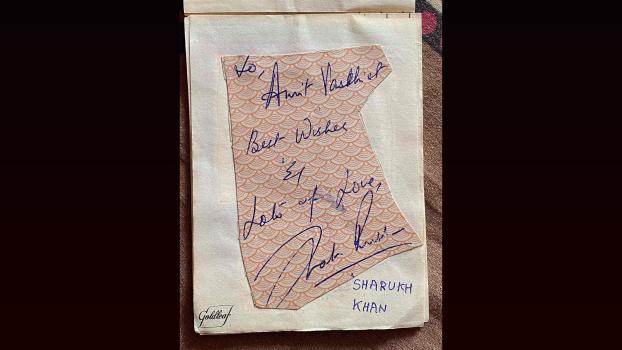 To,
Amrit Vashist
Best Wishes
&
Lots of Love,
Shah Rukh
SHARUKH
KHAN
Goldleaf